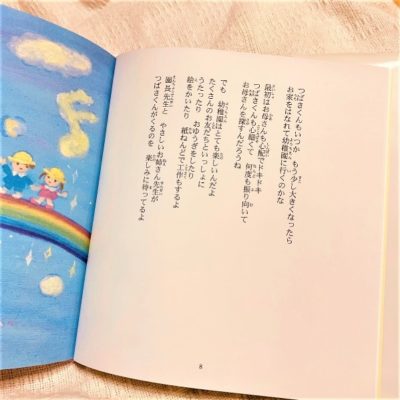 つばさくんもいつか もう少し大きくなったら
お家をはなれて幼稚園に行くのかな
最初はお母さんも心配でドキドキ
つばさくんも心細くて 何度も振り向いて
お母さんを探すんだろうね
でも 幼稚園はとても楽しいんだよ
たくさんのお友だちといっしょに
うたったり おゆうぎをしたり
絵をかいたり 紙ねんどで工作もするよ
園長先生と やさしいお姉さん先生が
つばさくんがくるのを 楽しみに待ってるよ
8